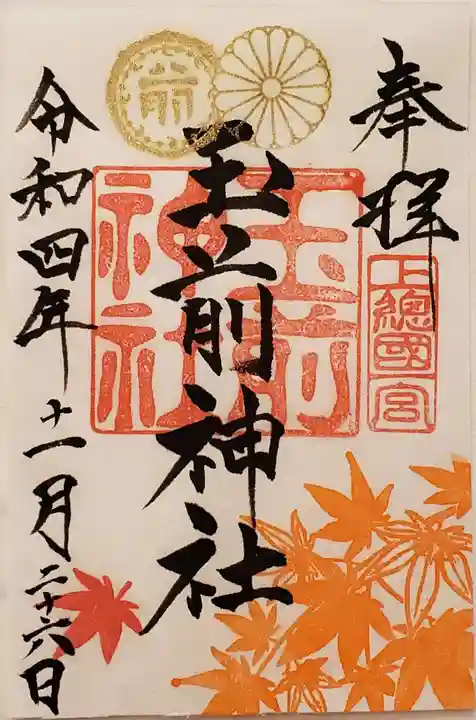 奉拝
上總國一宮
玉前神社
玉前神社
令和四年十一月二十六日